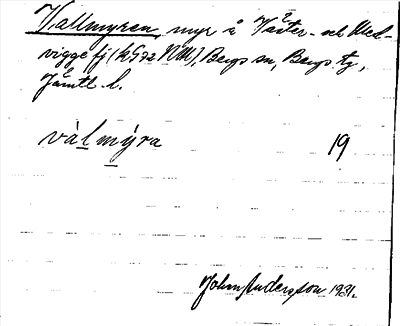 Vallmyren, myr å Väster- och Med-
vigge fj (k G 72 NM), Bergs sn, Bergs tg,
Jämtl. l.
vàlmýra 19
John Andersson 1931.